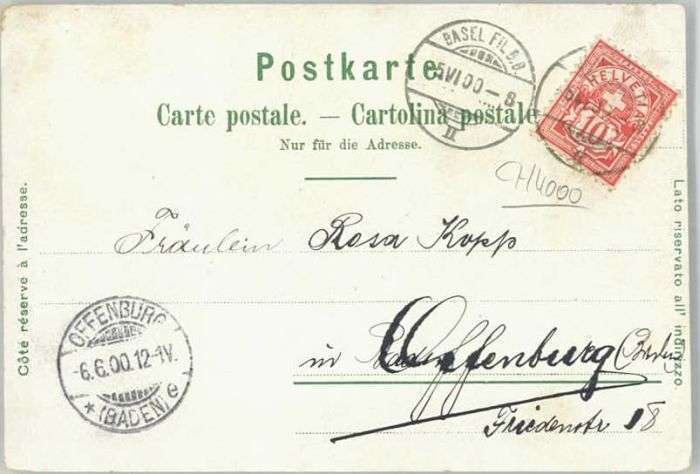 Postkarte
Carte postale. — Cartolina postale
Nur für die Adresse.
BASEL FIL. B.B.
5 VI 00 – 8
II
HELVETIA
10
CH4000
Côté réservé à l'adresse.
Lato riservato all' indirizzo.
Fräulein Rosa Kopp
in Offenburg (Baden)
Friedenstr 18
OFFENBURG
-6.6.00.12-1V.
* (BADEN) e